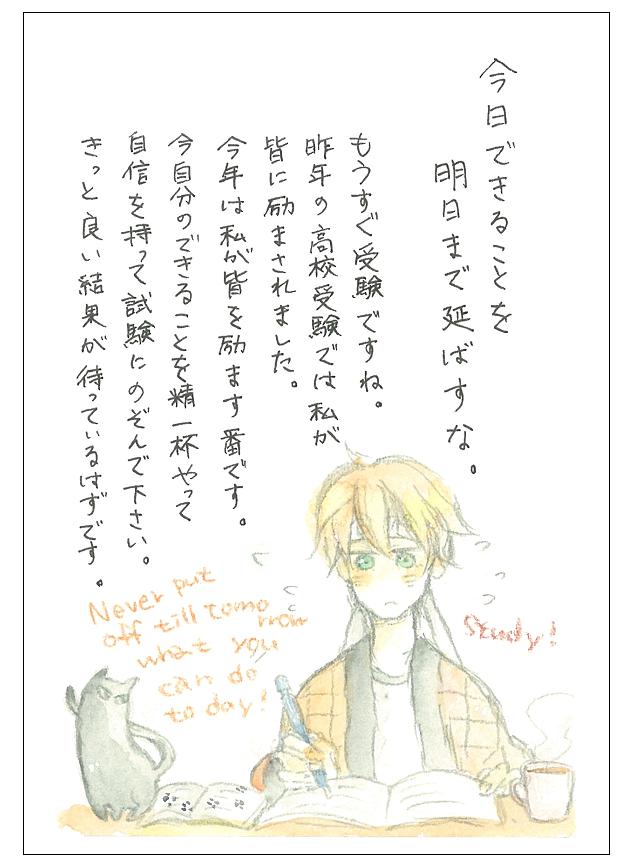 今日できることを
明日まで延ばすな。
もうすぐ受験ですね。
昨年の高校受験では私が
皆に励まされました。
今年は私が皆を励ます番です。
今自分のできることを精一杯やって
自信を持って試験にのぞんで下さい。
きっと良い結果が待っているはずです。
Never put
off till tomo
rrow
what you
can do
to day!
Study!